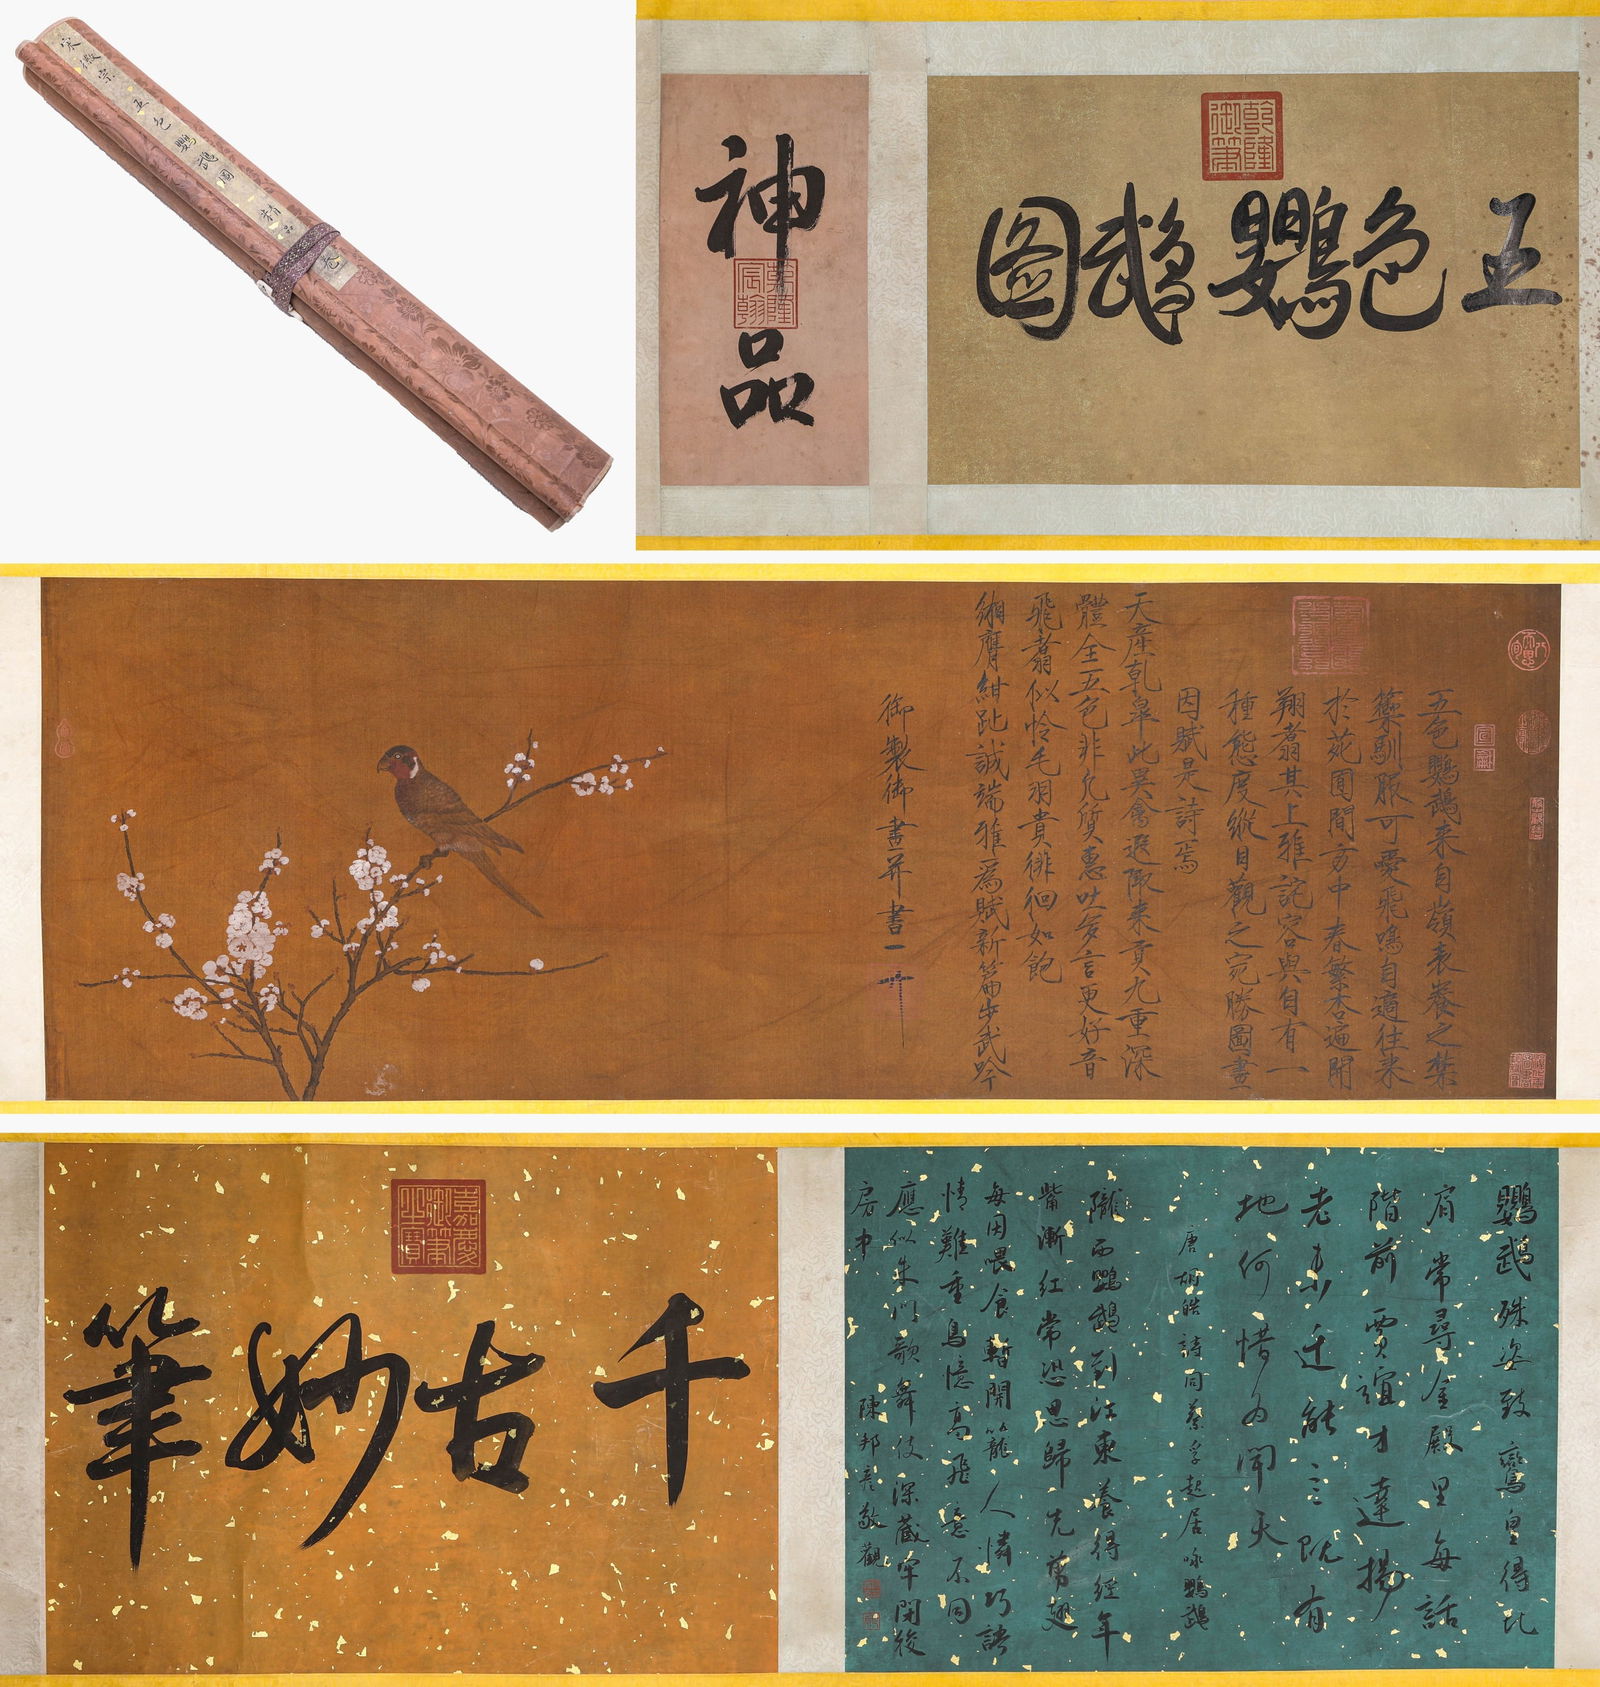 宋徽宗五色鸚鵡圖 精品卷
五色鸚鵡圖
乾隆御筆
神品
乾隆宸翰
五色鸚鵡來自嶺表養之禁
籞馴服可愛飛鳴自適往來
於苑囿間方中春繁杏遍開
翔翥其上雅詫容與自有一
種態度縱目觀之宛勝圖畫
因賦是詩焉
天產乾皋此異禽遐陬來貢九重深
體全五色非凡質惠吐多言更好音
飛翥似憐毛羽貴徘徊如飽
緗膺紺趾誠端雅為賦新篇步武吟
御製御畫并書
天下一人
八徵耄念
鸚鵡殊姿致鸞皇得比
肩常尋金殿裏每話
階前賈誼才達揚
老未遷能言既有
地何惜為聞天
唐胡皓詩同蔡孚起居咏鸚鵡
隴西鸚鵡到江東養得經年
觜漸紅常恐思歸先剪翅
每因喂食暫開籠人憐巧語
情難重鳥憶高飛意不同
應似朱門歌舞伎深藏牢閉後
房中 陳邦彥敬觀
千古妙筆
嘉慶御筆之寶